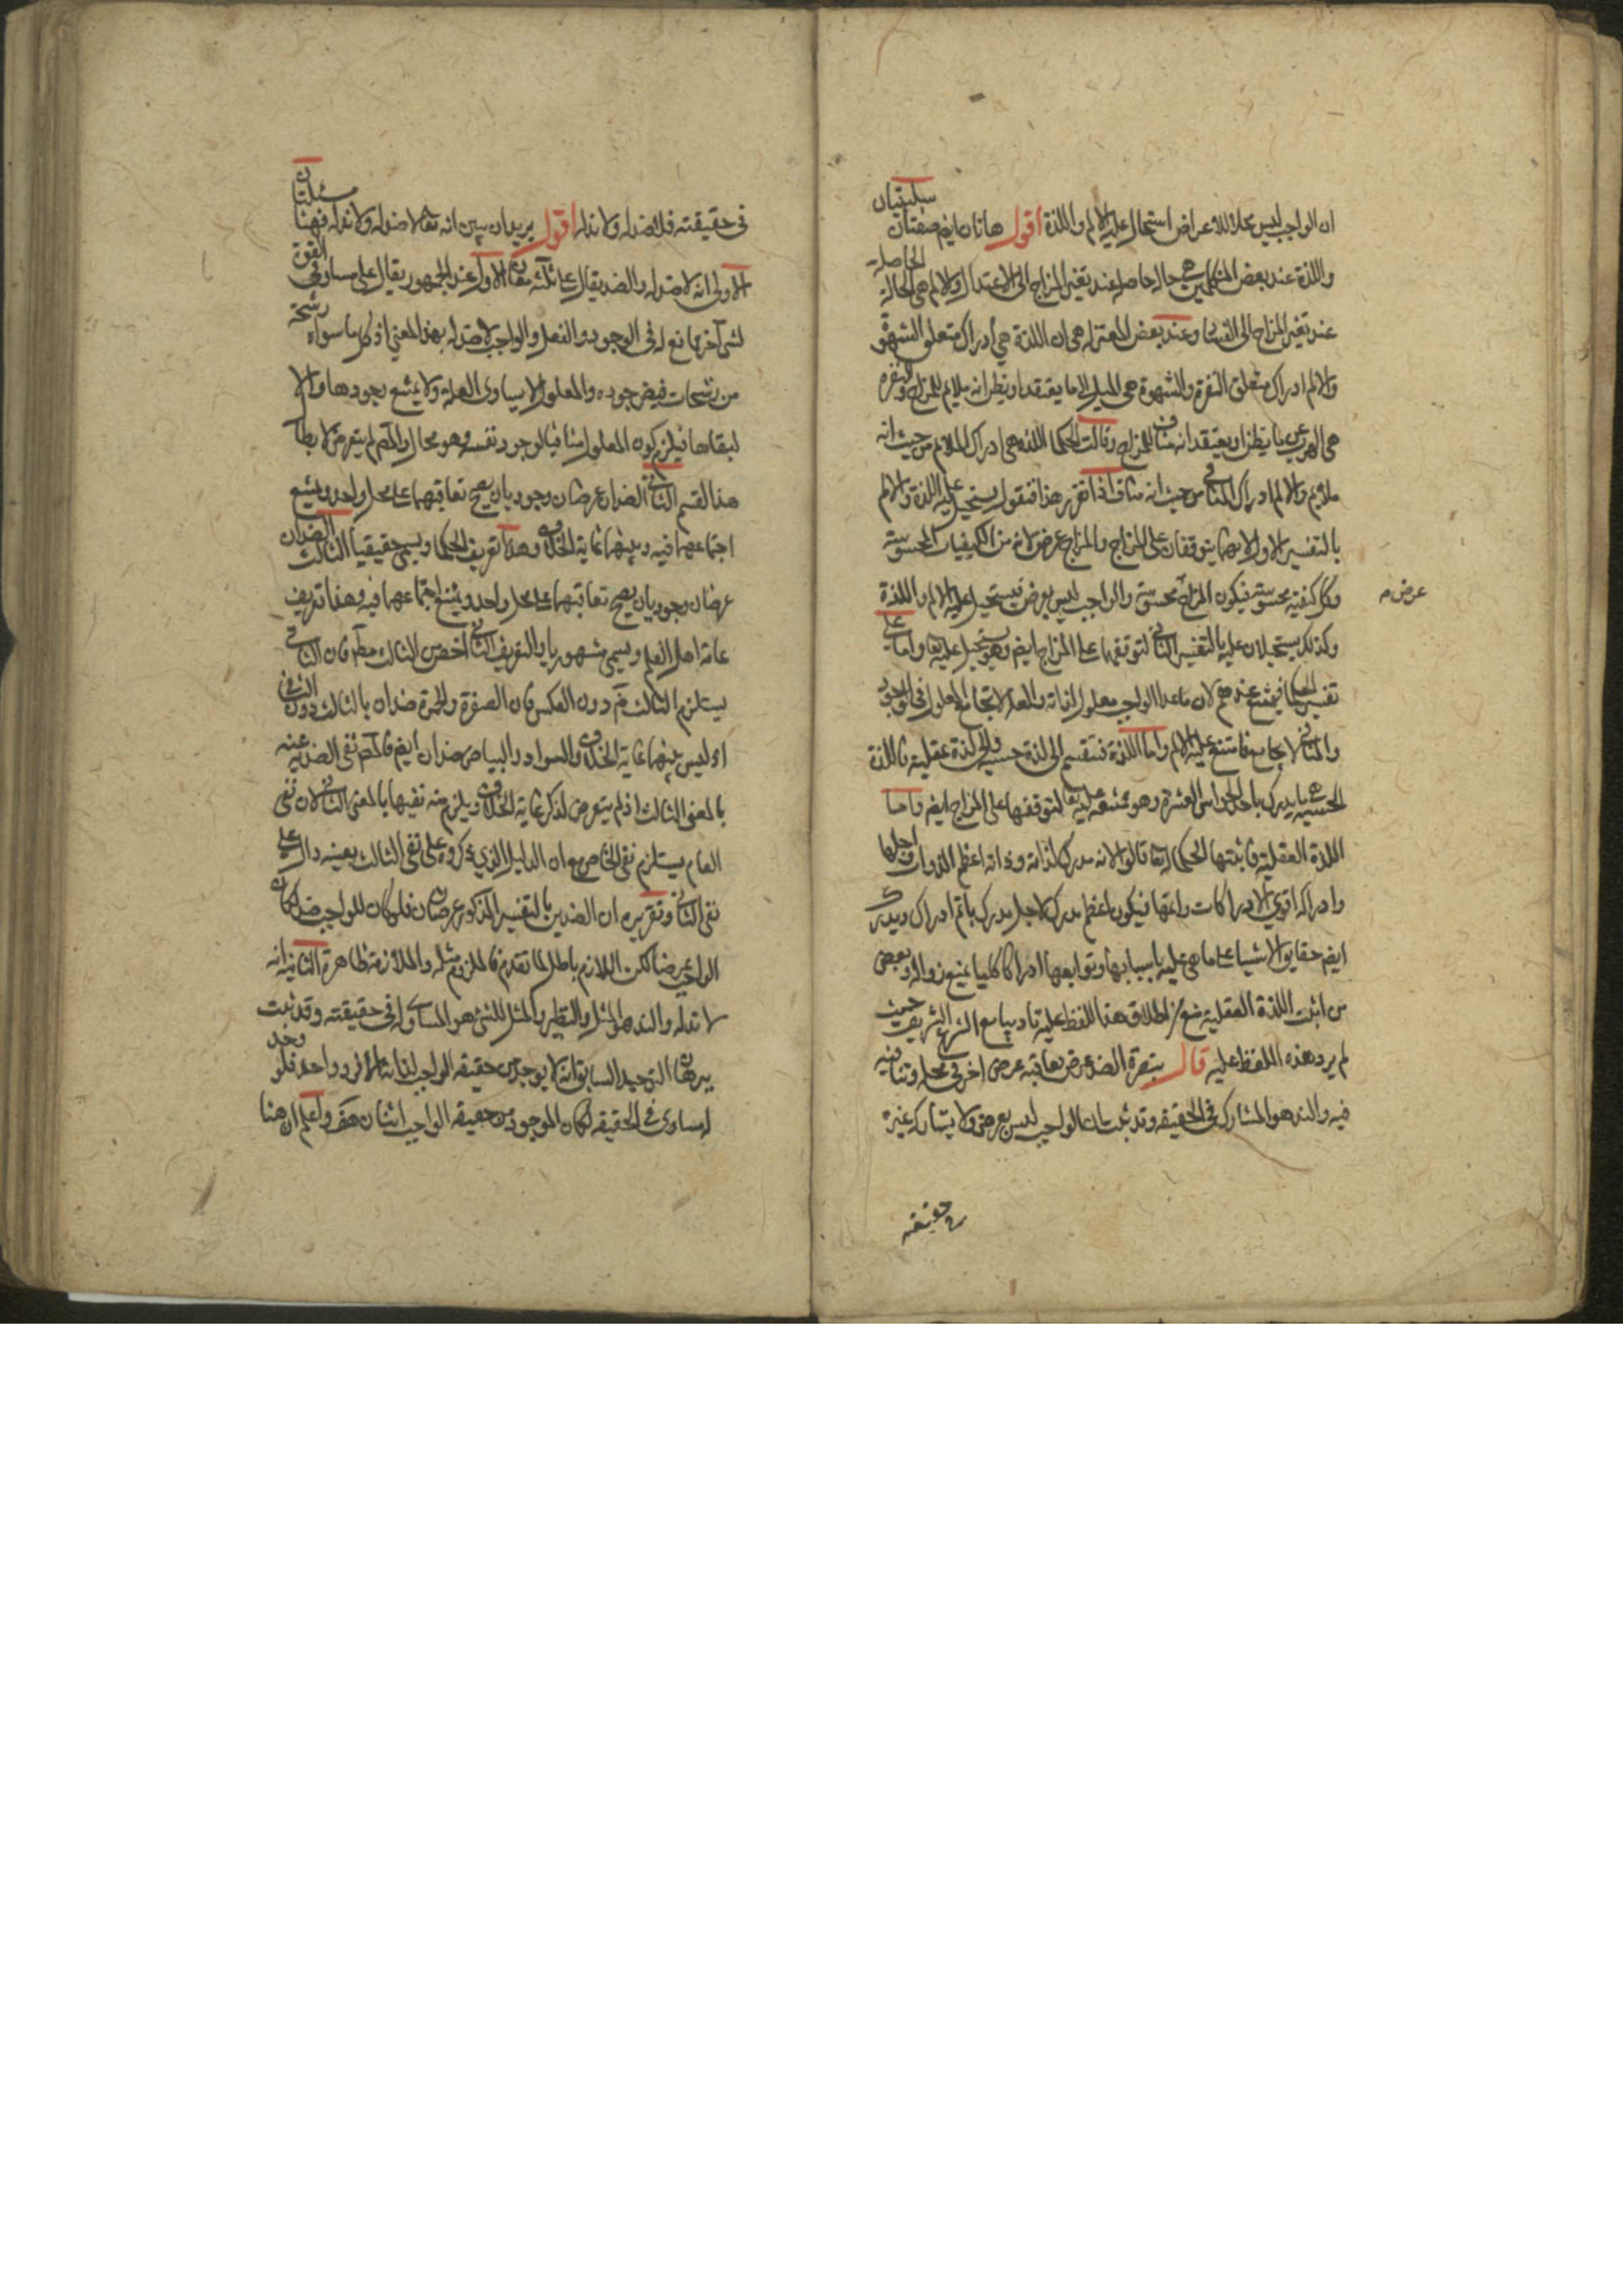 ان الواجب ليس محلا للاعراض استحال عليه الالم واللذة اقول هاتان ايضا صفتان سلبيتان
واللذة عند بعض المتكلمين هي حالة حاصلة عند تغير المزاج الى الاعتدال والالم هي الحالة الحاصلة
عند تغير المزاج الى الفساد وعند بعض المعتزلة هي ان اللذة هي ادراك متعلق الشهوة
والالم ادراك متعلق النفرة والشهوة هي الميل الى ما يعتقد او يظن انه ملايم للمزاج والنفرة
هي الهرب عن ما يظن او يعتقد انه مناف للمزاج وقالت الحكما اللذة هي ادراك الملايم من حيث انه
ملايم والالم ادراك المنافي من حيث انه مناف اذا تقرر هذا فنقول يستحيل عليه اللذة والالم
بالتفسير الاول لانهما يتوقفان على المزاج والمزاج عرض لانه من الكيفيات المحسوسة
وكل كيفية محسوسة فيكون المزاج محسوسة والواجب ليس بعرض فيستحيل عليه الالم واللذة
عرض م
وكذلك يستحيلان عليه بالتفسير الثاني لتوقفهما على المزاج ايضا وهو يستحيل عليه تعا واما على
تفسير الحكما فيمتنع عندهم لان ما عدا الواجب معلول لذاته والعلة لا تجامع المعلول في الوجود
والمنافي لا يجامع فامتنع عليه الالم واما اللذة فتنقسم الى لذة حسية والى لذة عقلية فاللذة
الحسية هي ما يدرك باحد الحواس العشرة وهو ممتنعة عليه تعا لتوقفها على المزاج ايضا واما
اللذة العقلية فاثبتها الحكما له تعا قالوا لانه مدرك لذاته وذاته اعظم الذوات واجلها
وادراكه اقوى الادراكات واتمها فيكون اعظم مدرك لاجل مدرك باتم ادراك ويدرك
ايضا حقايق الاشيا على ما هي عليه باسبابها وتوابعها ادراكا كليا يمتنع زواله وبعض
من اثبت اللذة العقلية منع من اطلاق هذا اللفظ عليه تادبا مع الشرع الشريف حيث
لم يرد هذه اللفظ عليه قال تبصرة الضد عرض يعاقبه عرض اخر في محله وينافيه
فيه والند هو المشارك في الحقيقة وقد ثبت ان الواجب ليس بعرض ولا يشاركه غيره
في حقيقته
في حقيقته فلا ضد له ولا ند له اقول يريد ان يبين انه تعا لا ضد له ولا ند له فههنا مسئلتان
الاولى انه لا ضد له والضد يقال على ثلثة معان الاول عند الجمهور يقال على مساو في القوة
لشئ آخر مانع له في الوجود والفعل والواجب لا ضد له بهذا المعنى اذ كل ما سواه رشحة
من رشحات فيض جوده والمعلول لا يساوى العلة ولا يمتنع بجودها والا
لبقاها فيلزم كون المعلول منافيا لوجود نفسه وهو محال والمص لم يتعرض لابطال
هذا القسم الثاني الضدان عرضان وجوديان يصح تعاقبهما على محل واحد ويمتنع
اجتماعهما فيه وبينهما غاية الخلاف وهذا تعريف الحكما ويسمى حقيقيا الثالث الضدان
عرضان وجوديان يصح تعاقبهما على محل واحد ويمتنع اجتماعهما فيه وهذا تعريف
عامة اهل العلم ويسمى مشهوريا والتعريف الثاني اخص من الثالث مطلقا فان الثاني
يستلزم الثالث من دون العكس فان الصفرة والحمرة ضدان بالثالث دون الثاني
اذ ليس بينهما غاية الخلاف والسواد والبياض ضدان ايضا فالمص نفى الضد عنه
بالمعنى الثالث اذ لم يتعرض لذكر غاية الخلاف ويلزم منه نفيها بالمعنى الثاني لان نفى
العام يستلزم نفى الخاص مع ان الدليل الذي ذكروه على نفى الثالث بعينه دال على
نفى الثاني وتقريره ان الضدين بالتفسير المذكور عرضان فلو كان للواجب ضد لكان
الواجب عرضا لكن اللازم باطل لما تقدم فالملزوم مثله والملازمة ظاهرة الثانية انه
لا ند له والند هو المثل والنظير والمثل للشئ هو المساوي له في حقيقته وقد ثبت
ببرهان التوحيد السابق انه لا يوجد من حقيقة الواجب لذاته الا فرد واحد فلو وجد
له مساوى في الحقيقة لكان الموجود من حقيقة الواجب اثنان هف واعلم ان هنا